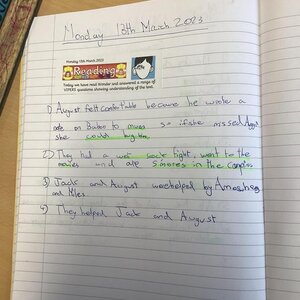 Monday 13th March 2023
Monday 13th March 2023
Reading
Today we have read Wonder and answered a range of
VIPERS questions showing understanding of the text.
1) August felt comfortable because he wrote a
note on to so if she missed August
she could hug him.
2) They had a wet sock fight, went to the
movies and ate s'mores in the campfire
3) Jack and August were helped by Amos, henry
and Miles
4) They helped Jack and August